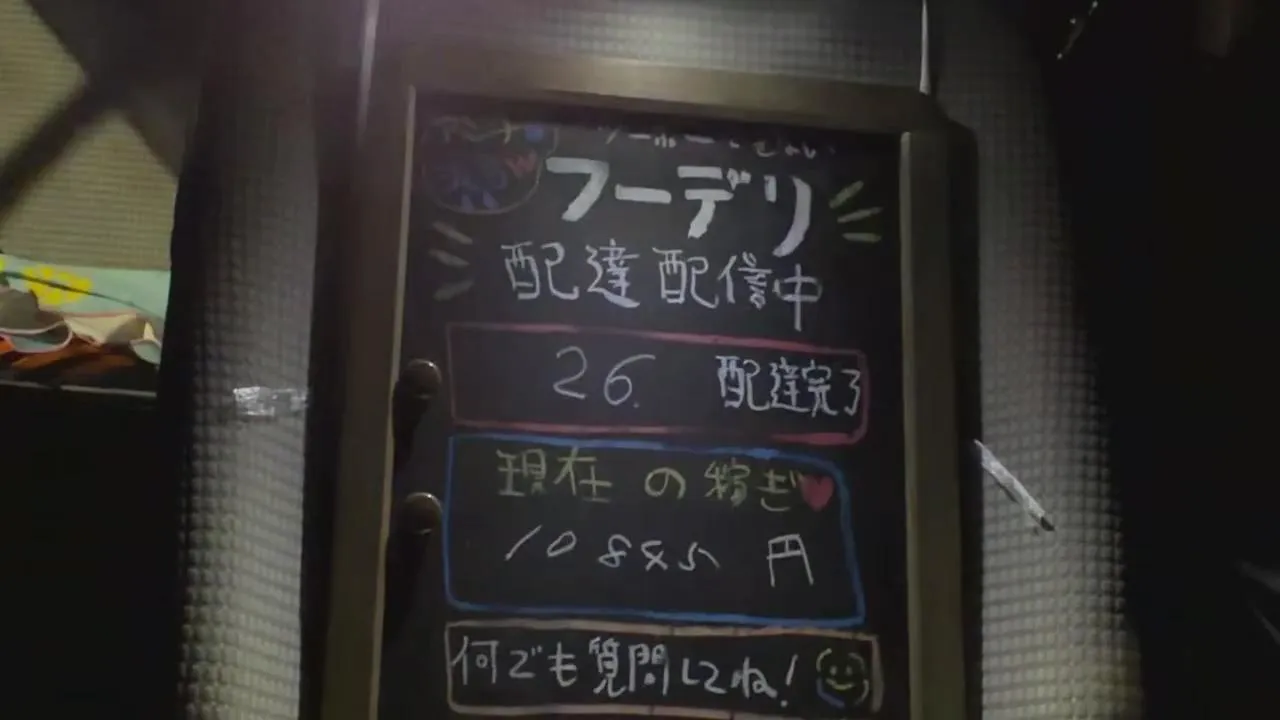 フーデリ
配達配信中
26 配達完了
現在の稼ぎ
10845 円
何でも質問してね!